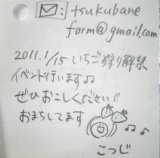 : tsukubane
farm@gmail.com
2011.1/15 いちご狩り解禁
イベント行います♪
ぜひおこしください!!
おまちしてます
こつじ